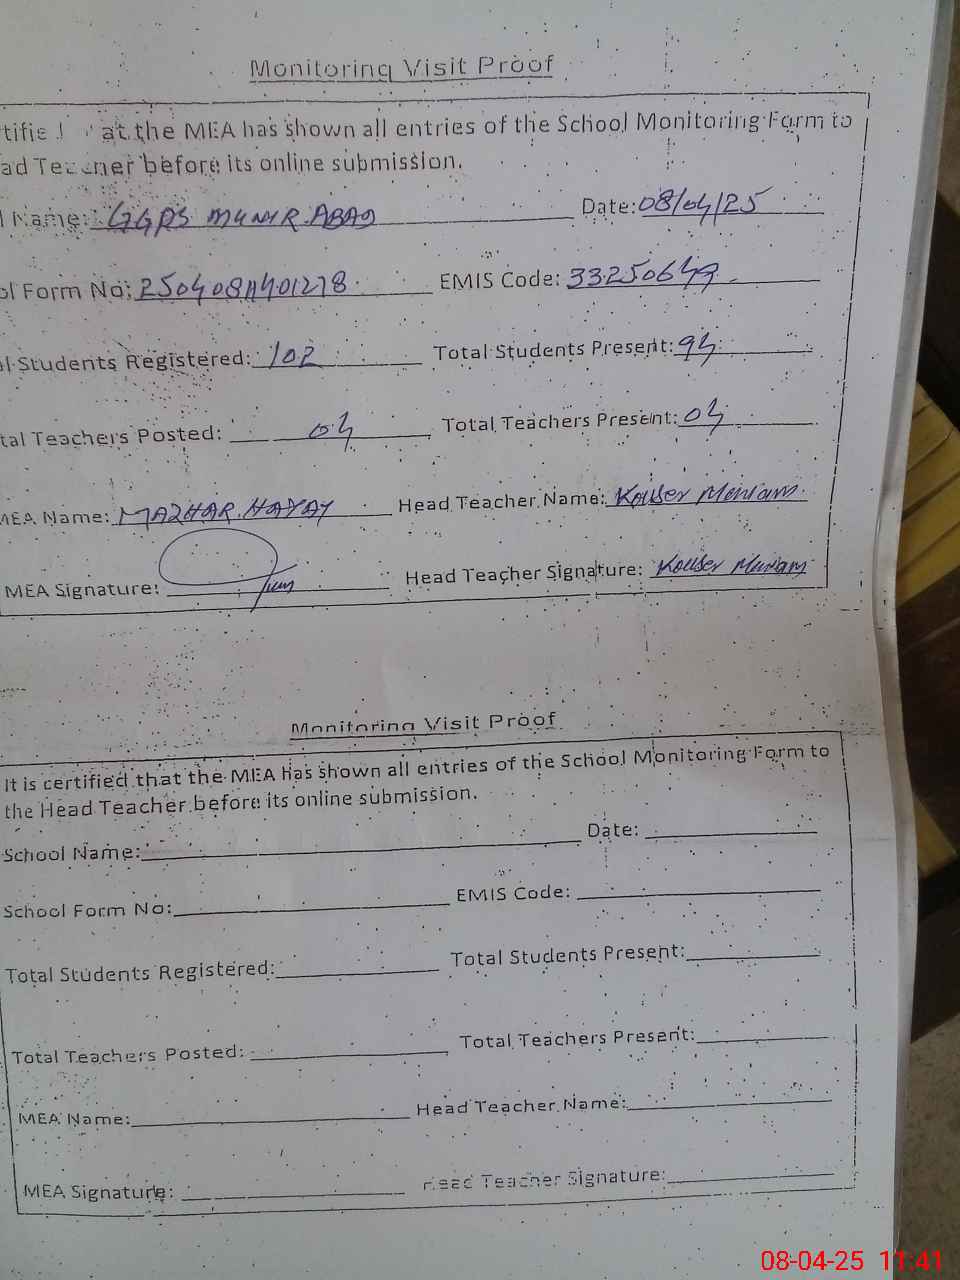 Monitoring Visit Proof
at the MEA has shown all entries of the School Monitoring Form to
ad Teacher before its online submission.
Name: GGPS MUNIR ABAD Date: 08/04/25
ol Form No: 250408A401278 EMIS Code: 33250649
al Students Registered: 102 Total Students Present: 94
tal Teachers Posted: 04 Total Teachers Present: 04
MEA Name: MAZHAR HAYAT Head Teacher Name: Kouser Meriam
MEA Signature: Head Teacher Signature: Kouser Muriam
Monitoring Visit Proof
It is certified that the MEA has shown all entries of the School Monitoring Form to
the Head Teacher before its online submission.
School Name: Date:
School Form No: EMIS Code:
Total Students Registered: Total Students Present:
Total Teachers Posted: Total Teachers Present:
MEA Name: Head Teacher Name:
MEA Signature: Head Teacher Signature:
08-04-25 11:41